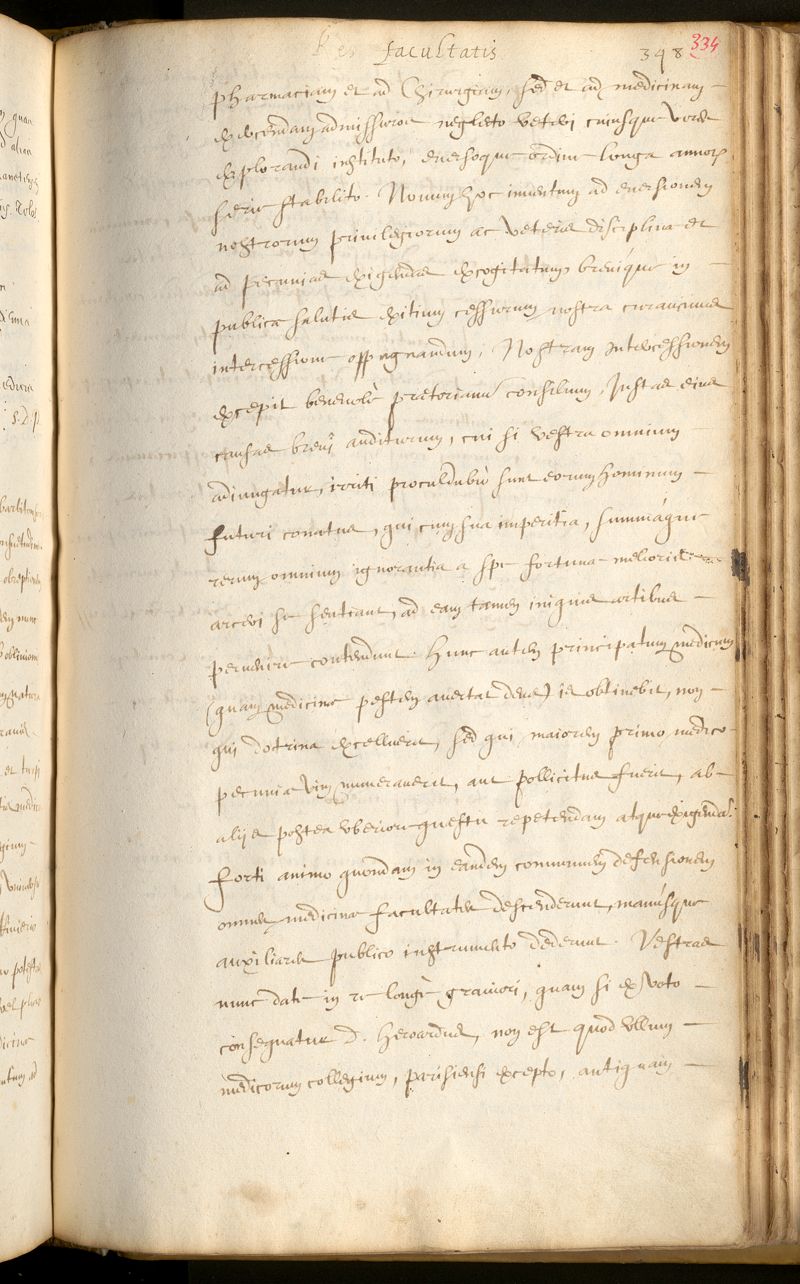 Res facultatis 348 334
pharmaciam et ad Chirurgiam, sed et ad medicinam
exercendam admissuros neglecto veteri cuiusque vires
explorandi instituto, eversoque ordine longa annorum
serie stabilito. Novum hoc inventum ad eversionem
nostrorum privilegiorum ac veteris disciplinæ et
ad pecunias exigendas excogitatum, breviq̃ue in
publicæ salutis exitium cessurum nostra curavimus
intercessione oppugnandum; Nostram Intercessionem
excepit benevolè prætorianum consilium, Justas eius
causas brevi auditurum, cui si vestra omnium
adiungatur, irriti proculdubiò sunt eorum hominum
futuri conatus, qui cum sua imperitia, summáque
rerum omnium ignorantia a spe fortunæ melioris
arceri se sentiant, ad eam tamen iniquis artibus
pervenire contendunt. Hunc autem principatum medicum
(quam medicinæ pestem avertat deus) is obtinebit, non
qui doctrina excelluerit, sed qui maiorem primo medico
pecuniæ vim numeraverit, aut pollicitus fuerit, ab
aliis postea uberiore quæstu repetendam atque exigendã.
Forti animo quondam in eandem communem defensionem
omnes medicinæ facultates descenderunt, manúsque
auxiliares publico instrumento dederunt. Vestras
nunc date in re longè graviori, quam si ex voto
consequatur D. Heroardus, non est quod ullum
medicorum collegium, parisiensi excepto, antiquam